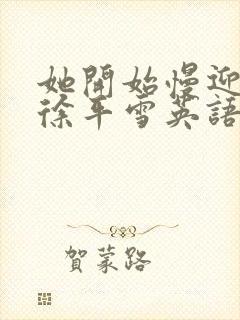 她開始慢迎
徐平雪英語
賀蒙路